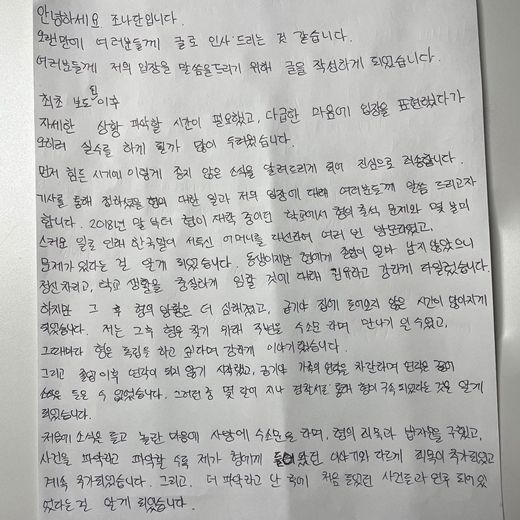 안녕하세요 조나단입니다.
오랜만에 여러분들께 글로 인사드리는 것 같습니다.
여러분들께 저의 입장을 말씀을드리기 위해 글을 작성하게 되었습니다.
최초 보도 된 이후
자세한 상황 파악할 시간이 필요했고, 다급한 마음에 입장을 표현하였다가
오히려 실수를 하게 될까 많이 두려웠습니다.
먼저 힘든 시기에 이렇게 좋지 않은 소식을 알려드리게 되어 진심으로 죄송합니다.
기사를 통해 접하셨을 형에 대한 일과 저의 입장에 대해 여러분들께 말씀 드리고자
합니다. 2018년 말 부터 형이 재학 중이던 학교에서 형의 출석 문제와 몇 불미
스러운 일로 인해 한국말이 서툰신 어머니를 대신하여 여러 번 방문하였고,
문제가 있다는 걸 알게 되었습니다. 동생이지만 형에게 졸업이 얼마 남지 않았으니
정신 차리고, 학교 생활을 충실하게 임할 것에 대해 권유하고 강하게 타일렀습니다.
하지만 그 후 형의 방황은 더 심해졌고, 급기야 집에 들어오지 않은 시간이 많아지게
되었습니다. 저는 그 후 형을 찾기 위해 주변을 수소문 하며 만나기 원 했었고,
그때마다 형은 독립을 하고 싶다며 강하게 이야기 했습니다.
그리고 졸업 이후 연락이 되지 않기 시작했고, 급기야 가족의 연락을 차단하며 연락은
소식은 들을 수 없었습니다. 그러던 중 몇 달이 지나 경찰서를 통해 형이 구속 되었다는 것을 알게
되었습니다.
처음에 소식을 듣고 놀란 마음에 사방에 수소문을 하며, 형의 죄목과 범죄사실을 구했고,
사건을 파악하고 파악할 수록 제가 형에게 들어왔던 이야기와 다르게 죄목이 추가되었고
계속 추가되었습니다. 그리고, 더 파악하고 난 후에 처음 들었던 사건들과 연루 되어있
었다는걸 알게 되었습니다.